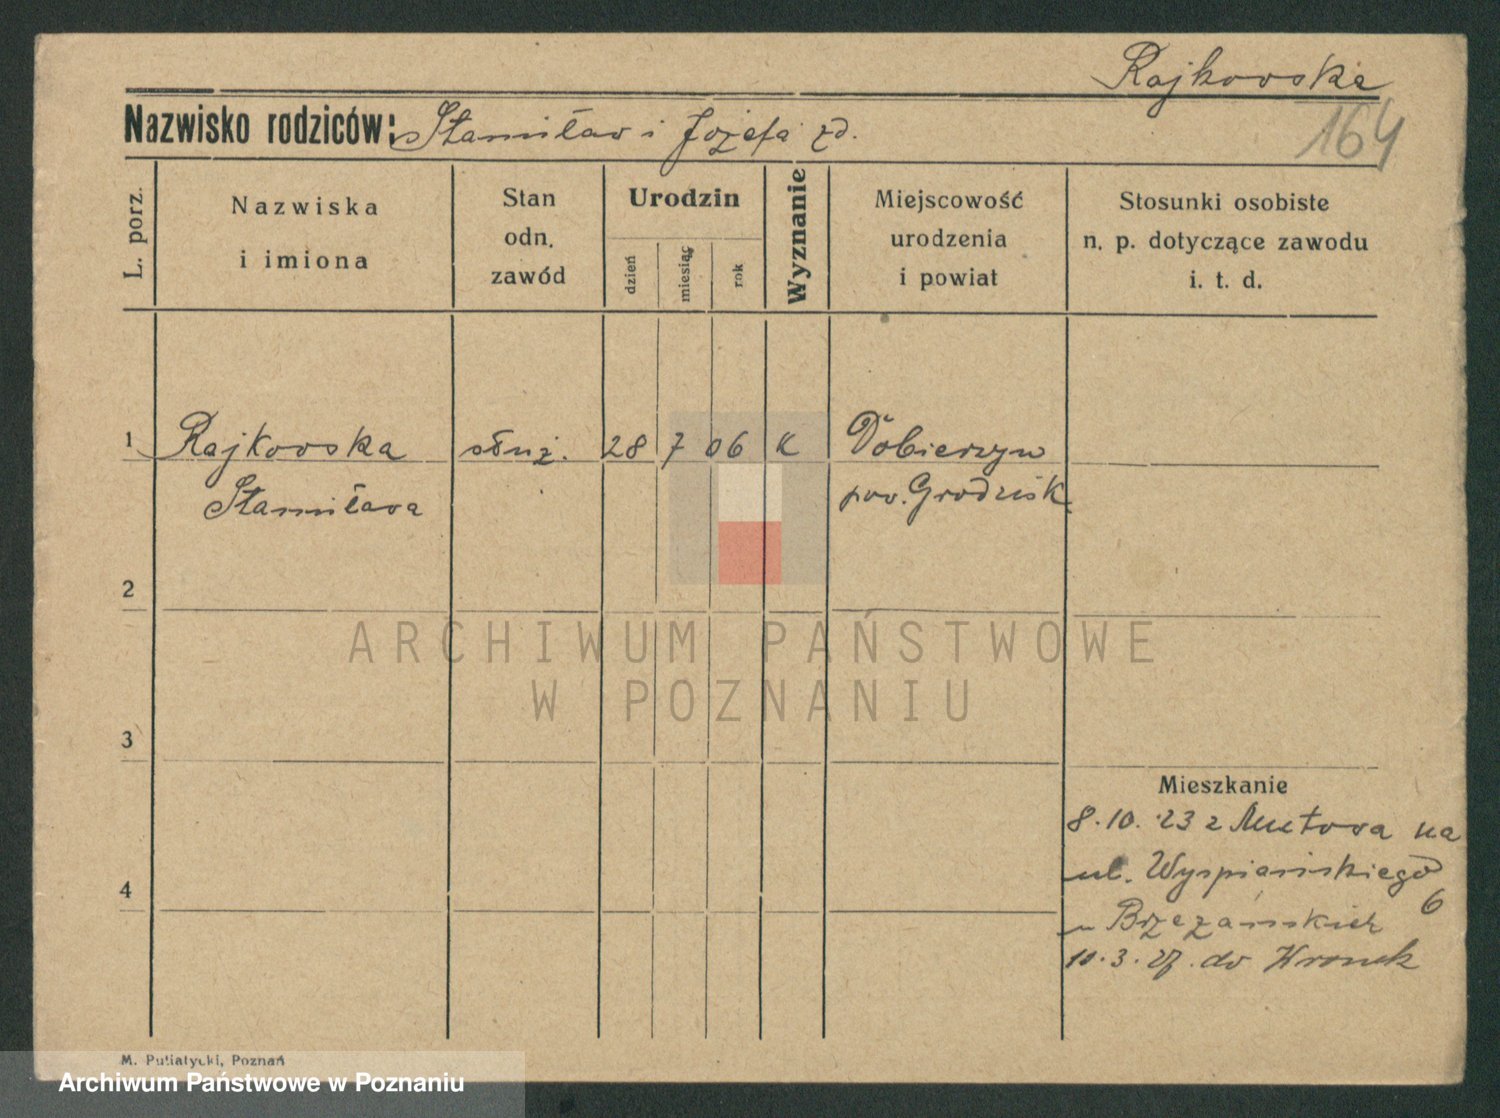 Rajkowska
Nazwisko rodziców: Stanisław i Józefa zd.
164
L. porz.
Nazwiska
i imiona
Stan
odn.
zawód
Urodzin
dzień
miesiąc
rok
Wyznanie
Miejscowość
urodzenia
i powiat
Stosunki osobiste
n. p. dotyczące zawodu
i. t. d.
1 Rajkowska służ. 28 7 06 K Dobierzyn
Stanisława pow. Grodzisk
2
ARCHIWUM PAŃSTWOWE
W POZNANIU
3
Mieszkanie
8.10.23 z Mutowa na
ul. Wyspiańskiego
6
u Brzezańskich
4
10.3.27. do Wronek
M. Putiatycki, Poznań
Archiwum Państwowe w Poznaniu